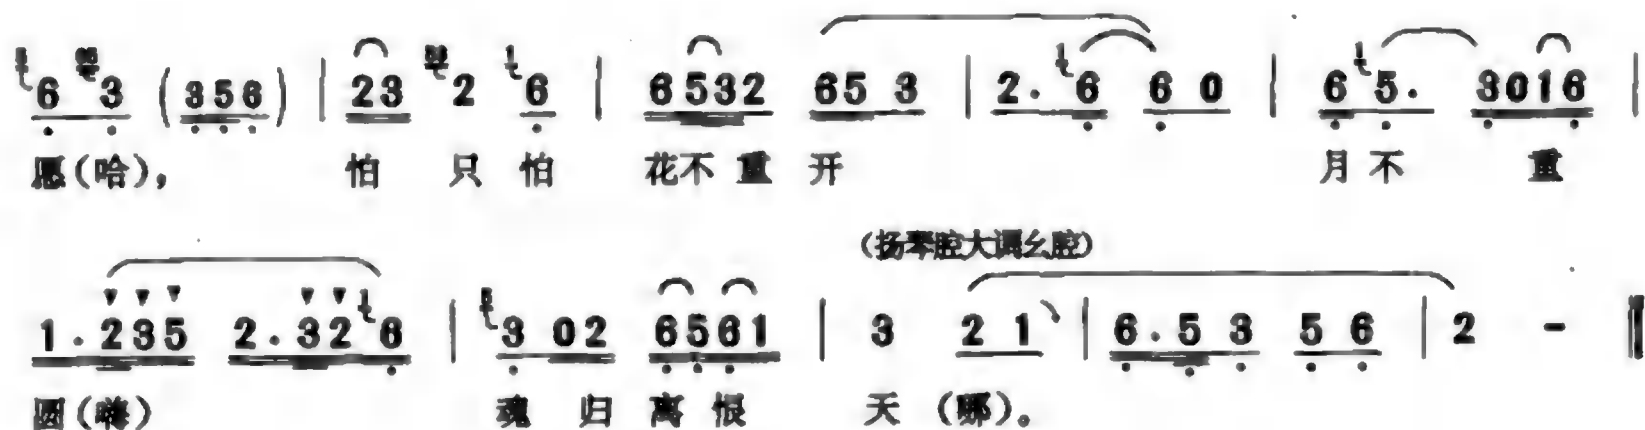 6 3 (356) | 23 2 6 | 6532 65 3 | 2. 6 6 0 | 6 5. 3016 |
愿(哈), 怕 只 怕 花不 重 开 月 不 重
(扬琴腔大调幺腔)
1.235 2.32 6 | 3 02 6561 | 3 2 1 | 6.5 3 5 6 | 2 - ‖
圆( ) 魂 归 离 恨 天 (哪)。